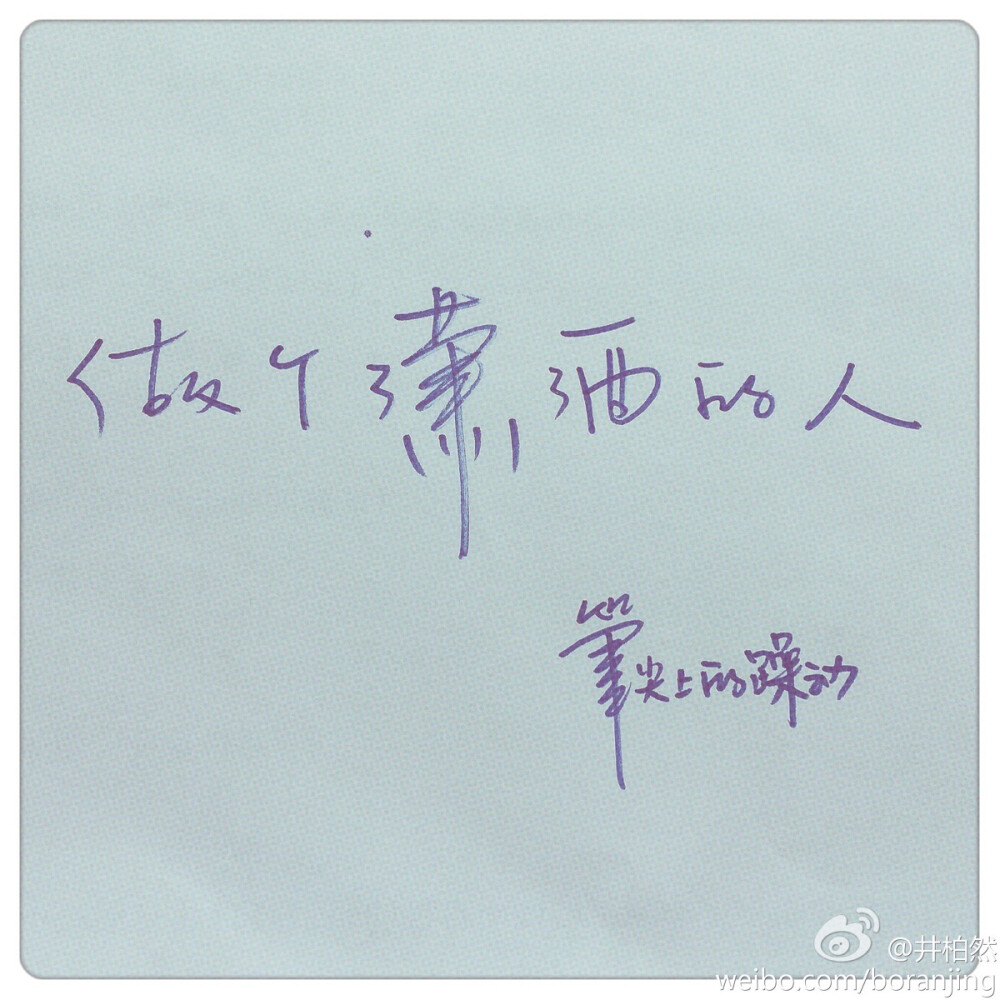 做个潇洒的人
筆尖上的躁动
@井柏然
weibo.com/boranjing